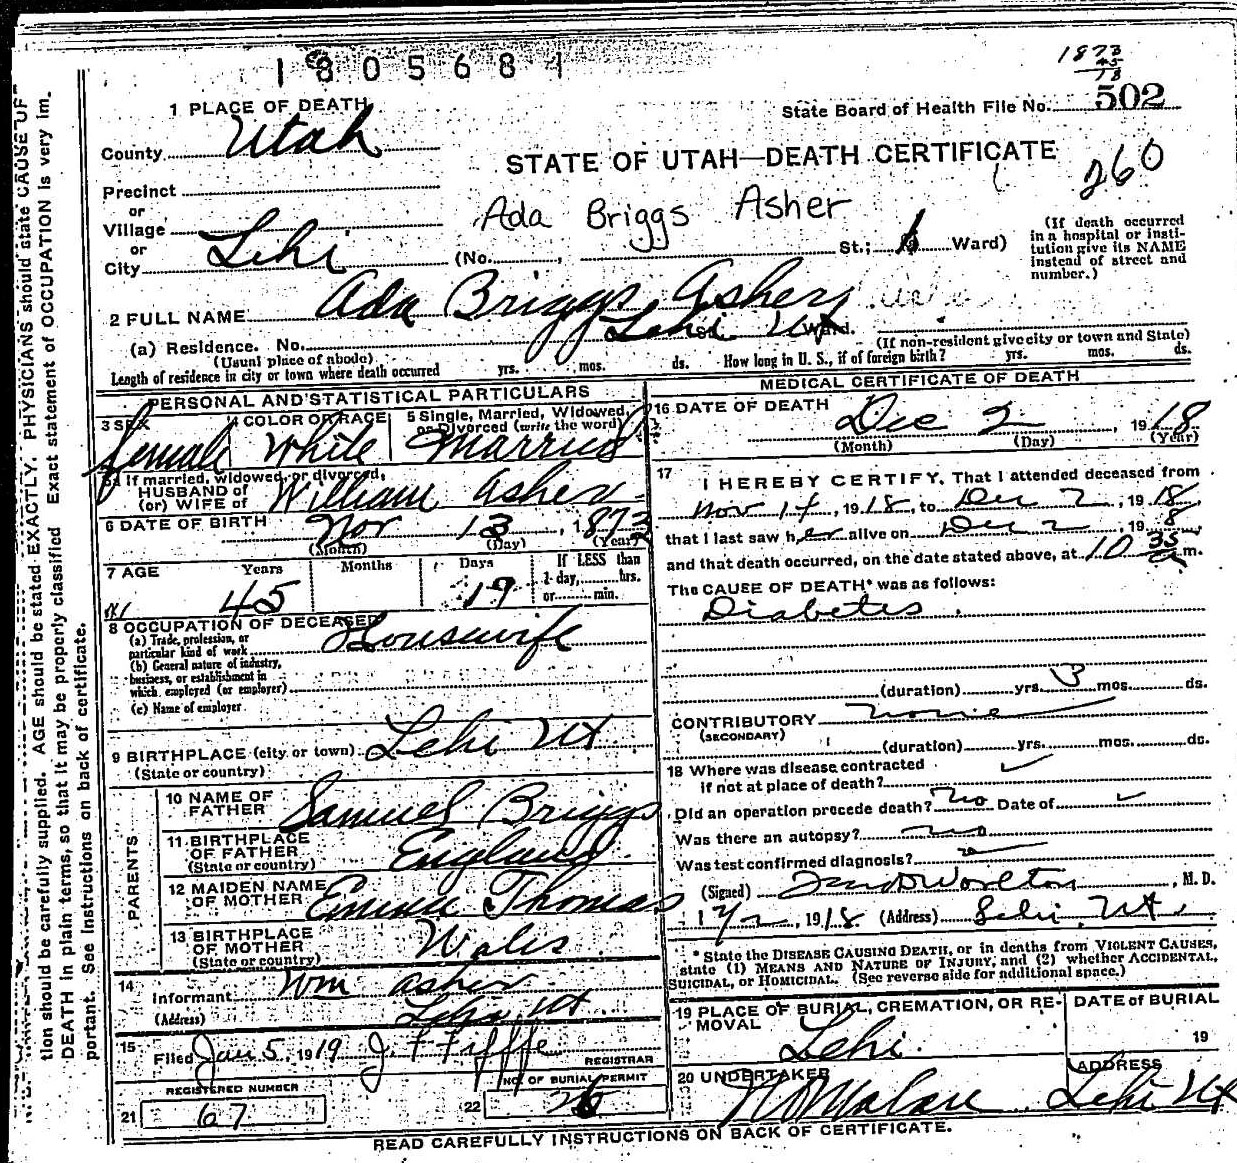 1805681
1873
45
18
1 PLACE OF DEATH
State Board of Health File No. 502
County Utah
STATE OF UTAH—DEATH CERTIFICATE
260
Precinct
or
Village
or
City Lehi
Ada Briggs Asher
(No. , St.; Ward)
(If death occurred in a hospital or institution give its NAME instead of street and number.)
2 FULL NAME Ada Briggs Asher
(a) Residence. No. Lehi Ut Ward.
(Usual place of abode)
(If non-resident give city or town and State)
Length of residence in city or town where death occurred yrs. mos. ds. How long in U. S., if of foreign birth? yrs. mos. ds.
PERSONAL AND STATISTICAL PARTICULARS
3 SEX female
4 COLOR OR RACE White
5 Single, Married, Widowed, or Divorced (write the word) Married
5a If married, widowed, or divorced,
HUSBAND of
(or) WIFE of William Asher
6 DATE OF BIRTH Nov 13, 1873
(Month) (Day) (Year)
7 AGE Years 45 Months Days 19
If LESS than
1 day, hrs.
or min.
8 OCCUPATION OF DECEASED
(a) Trade, profession, or
particular kind of work Housewife
(b) General nature of industry,
business, or establishment in
which employed (or employer)
(c) Name of employer
9 BIRTHPLACE (city or town) Lehi Ut
(State or country)
PARENTS
10 NAME OF
FATHER Samuel Briggs
11 BIRTHPLACE
OF FATHER England
(State or country)
12 MAIDEN NAME
OF MOTHER Emma Thomas
13 BIRTHPLACE
OF MOTHER Wales
(State or country)
14
Informant Wm Asher
(Address) Lehi Ut
15
Filed Jan 5, 1919
REGISTRAR
REGISTERED NUMBER
21 67
NO. OF BURIAL PERMIT
22
MEDICAL CERTIFICATE OF DEATH
16 DATE OF DEATH
Dec 2, 1918
(Month) (Day) (Year)
17 I HEREBY CERTIFY, That I attended deceased from
Nov 14, 1918, to Dec 2, 1918,
that I last saw her alive on Dec 2, 1918
and that death occurred, on the date stated above, at 10 35 a m.
The CAUSE OF DEATH* was as follows:
Diabetes
(duration) yrs. 3 mos. ds.
CONTRIBUTORY none
(SECONDARY)
(duration) yrs. mos. ds.
18 Where was disease contracted
if not at place of death?
Did an operation precede death? no Date of
Was there an autopsy? no
Was test confirmed diagnosis?
(Signed) , M. D.
12/2, 1918 (Address) Lehi, Ut.
* State the DISEASE CAUSING DEATH, or in deaths from VIOLENT CAUSES,
state (1) MEANS AND NATURE OF INJURY, and (2) whether ACCIDENTAL,
SUICIDAL, or HOMICIDAL. (See reverse side for additional space.)
19 PLACE OF BURIAL, CREMATION, OR REMOVAL
Lehi.
DATE of BURIAL
19
20 UNDERTAKER
ADDRESS
Lehi Ut
READ CAREFULLY INSTRUCTIONS ON BACK OF CERTIFICATE.
tion should be carefully supplied. AGE should be stated EXACTLY. PHYSICIANS should state CAUSE OF
DEATH in plain terms, so that it may be properly classified. Exact statement of OCCUPATION is very im-
portant. See instructions on back of certificate.